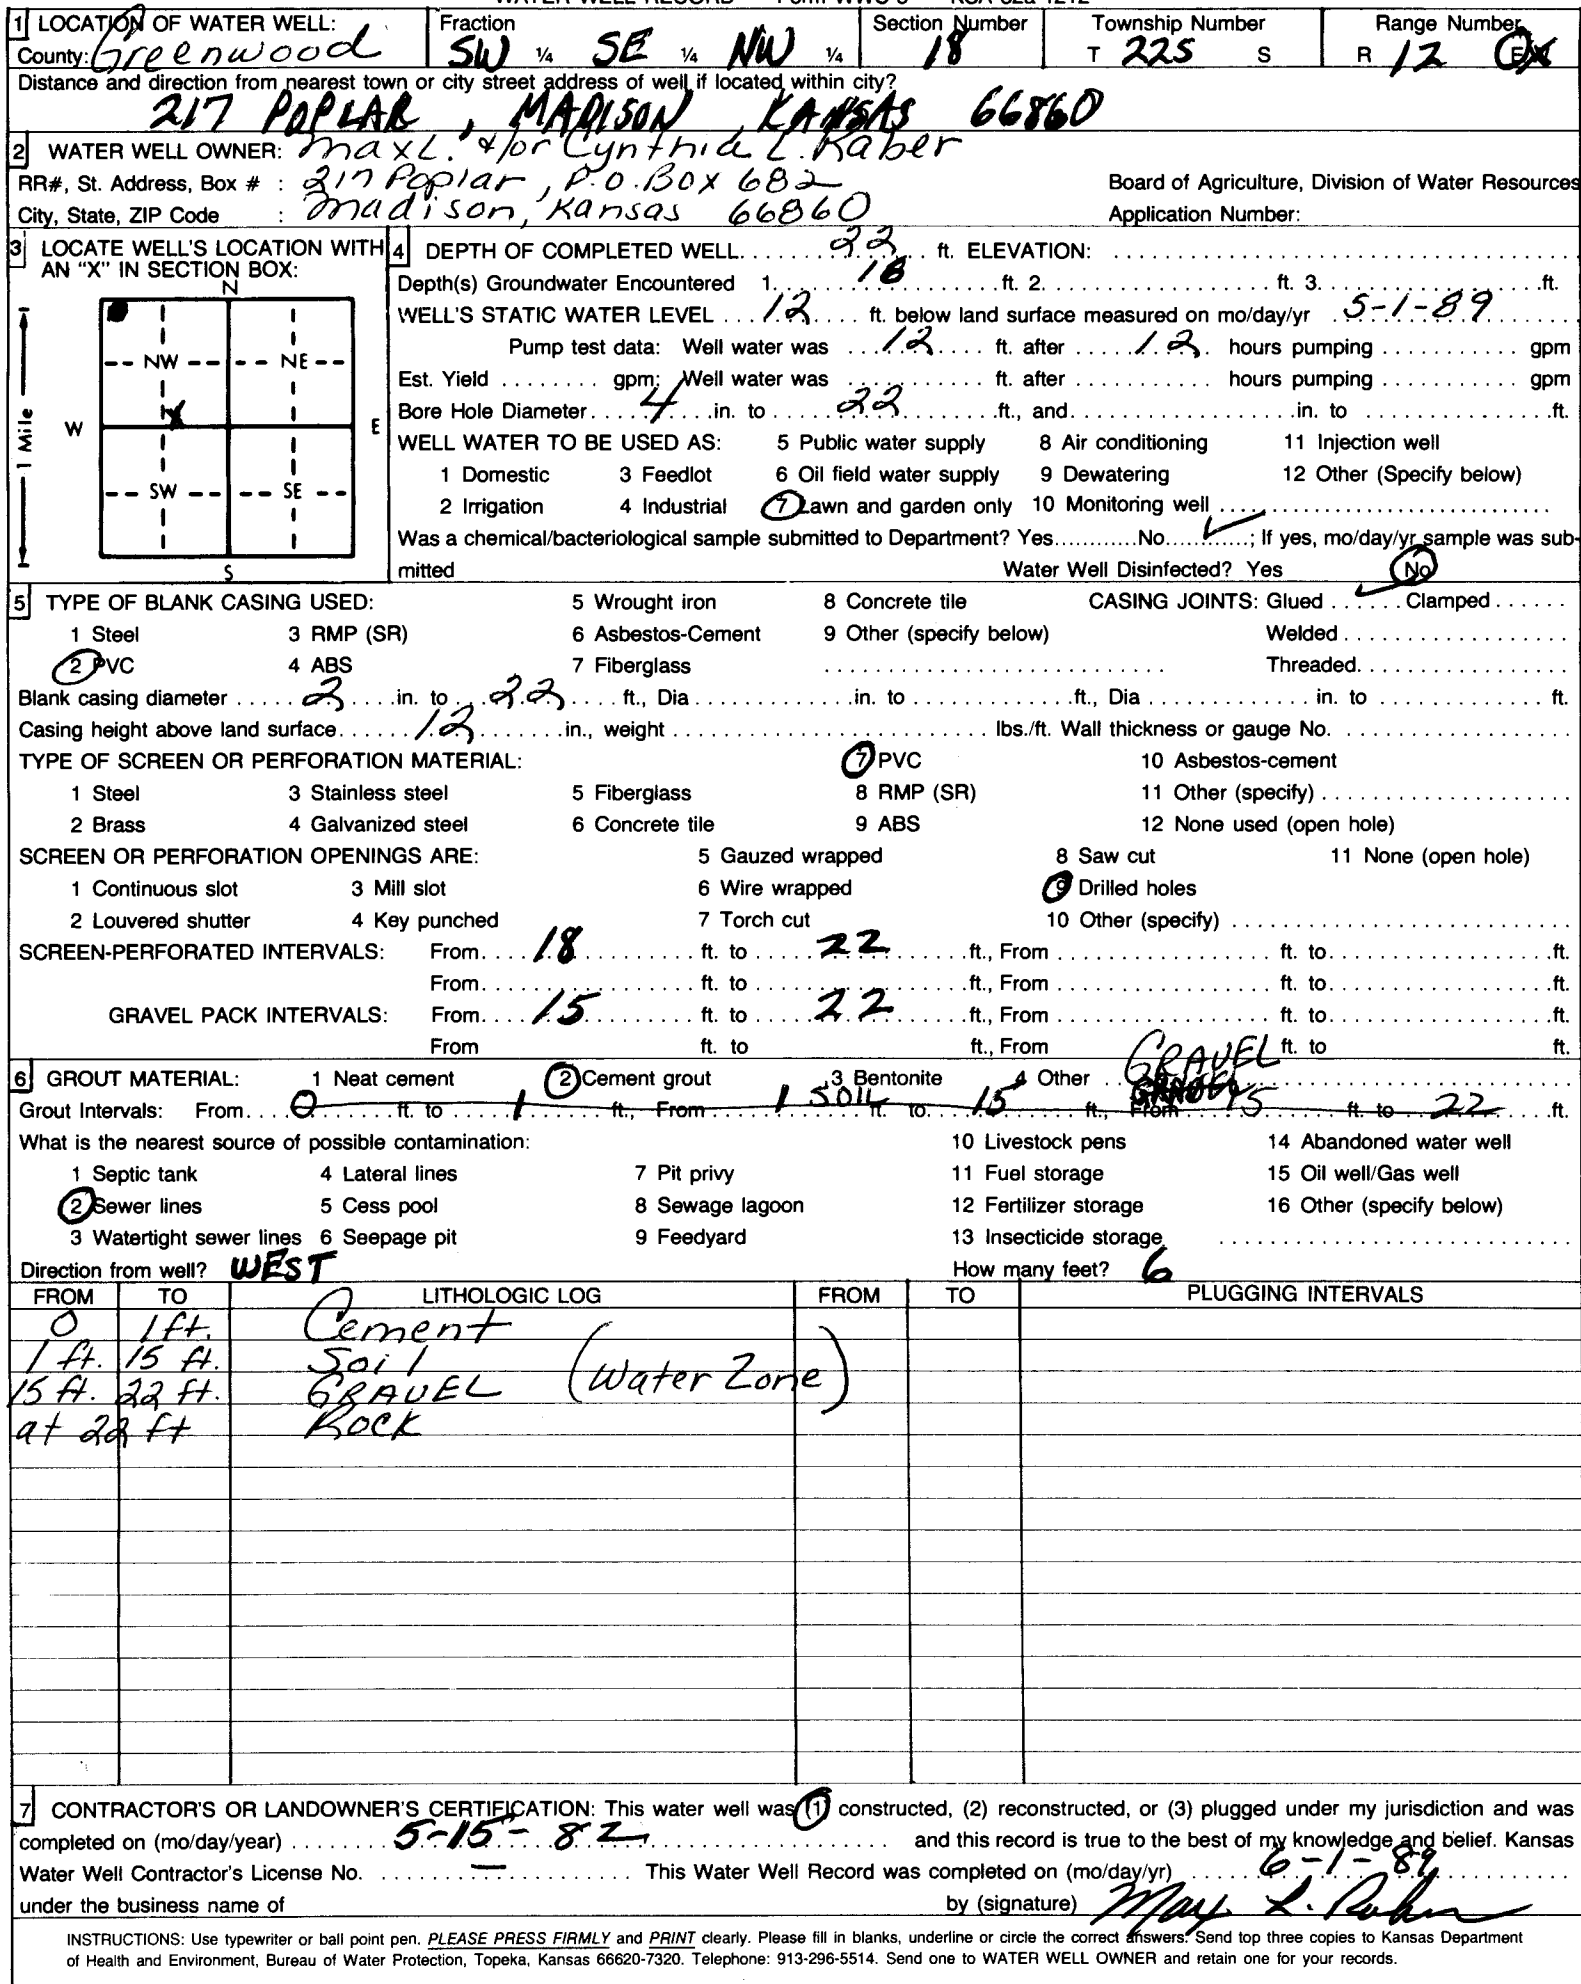 1 LOCATION OF WATER WELL: Fraction Section Number Township Number Range Number
County: Greenwood SW ¼ SE ¼ NW ¼ 18 T 22S S R 12 E
Distance and direction from nearest town or city street address of well if located within city?
217 POPLAR , MADISON , KANSAS 66860
2 WATER WELL OWNER: Max L. &/or Cynthia L. Raber
RR#, St. Address, Box # : 217 Poplar, P.O. Box 682 Board of Agriculture, Division of Water Resources
City, State, ZIP Code : Madison, Kansas 66860 Application Number:
3 LOCATE WELL'S LOCATION WITH AN "X" IN SECTION BOX:
N
NW NE
W X E
1 Mile
SW SE
S
4 DEPTH OF COMPLETED WELL. 22 ft. ELEVATION:
Depth(s) Groundwater Encountered 1. 18 ft. 2. ft. 3. ft.
WELL'S STATIC WATER LEVEL 12 ft. below land surface measured on mo/day/yr 5-1-89
Pump test data: Well water was 12 ft. after 12 hours pumping gpm
Est. Yield gpm; Well water was ft. after hours pumping gpm
Bore Hole Diameter 4 in. to 22 ft., and in. to ft.
WELL WATER TO BE USED AS: 5 Public water supply 8 Air conditioning 11 Injection well
1 Domestic 3 Feedlot 6 Oil field water supply 9 Dewatering 12 Other (Specify below)
2 Irrigation 4 Industrial 7 Lawn and garden only 10 Monitoring well
Was a chemical/bacteriological sample submitted to Department? Yes No ✓; If yes, mo/day/yr sample was sub-
mitted Water Well Disinfected? Yes No
5 TYPE OF BLANK CASING USED: 5 Wrought iron 8 Concrete tile CASING JOINTS: Glued ✓ Clamped
1 Steel 3 RMP (SR) 6 Asbestos-Cement 9 Other (specify below) Welded
2 PVC 4 ABS 7 Fiberglass Threaded
Blank casing diameter 2 in. to 22 ft., Dia in. to ft., Dia in. to ft.
Casing height above land surface 12 in., weight lbs./ft. Wall thickness or gauge No.
TYPE OF SCREEN OR PERFORATION MATERIAL: 7 PVC 10 Asbestos-cement
1 Steel 3 Stainless steel 5 Fiberglass 8 RMP (SR) 11 Other (specify)
2 Brass 4 Galvanized steel 6 Concrete tile 9 ABS 12 None used (open hole)
SCREEN OR PERFORATION OPENINGS ARE: 5 Gauzed wrapped 8 Saw cut 11 None (open hole)
1 Continuous slot 3 Mill slot 6 Wire wrapped 9 Drilled holes
2 Louvered shutter 4 Key punched 7 Torch cut 10 Other (specify)
SCREEN-PERFORATED INTERVALS: From 18 ft. to 22 ft., From ft. to ft.
From ft. to ft., From ft. to ft.
GRAVEL PACK INTERVALS: From 15 ft. to 22 ft., From ft. to ft.
From ft. to ft., From ft. to ft.
6 GROUT MATERIAL: 1 Neat cement 2 Cement grout 3 Bentonite 4 Other GRAVEL
Grout Intervals: From 0 ft. to 1 ft., From 1 SOIL ft. to 15 ft., From 15 ft. to 22 ft.
What is the nearest source of possible contamination: 10 Livestock pens 14 Abandoned water well
1 Septic tank 4 Lateral lines 7 Pit privy 11 Fuel storage 15 Oil well/Gas well
2 Sewer lines 5 Cess pool 8 Sewage lagoon 12 Fertilizer storage 16 Other (specify below)
3 Watertight sewer lines 6 Seepage pit 9 Feedyard 13 Insecticide storage
Direction from well? WEST How many feet? 6
FROM TO LITHOLOGIC LOG FROM TO PLUGGING INTERVALS
0 1 ft. Cement
1 ft. 15 ft. Soil
15 ft. 22 ft. GRAVEL (Water Zone)
at 22 ft ROCK
7 CONTRACTOR'S OR LANDOWNER'S CERTIFICATION: This water well was (1) constructed, (2) reconstructed, or (3) plugged under my jurisdiction and was
completed on (mo/day/year) 5-15-82 and this record is true to the best of my knowledge and belief. Kansas
Water Well Contractor's License No. — This Water Well Record was completed on (mo/day/yr) 6-1-89
under the business name of by (signature) Max L. Raber
INSTRUCTIONS: Use typewriter or ball point pen. PLEASE PRESS FIRMLY and PRINT clearly. Please fill in blanks, underline or circle the correct answers. Send top three copies to Kansas Department
of Health and Environment, Bureau of Water Protection, Topeka, Kansas 66620-7320. Telephone: 913-296-5514. Send one to WATER WELL OWNER and retain one for your records.